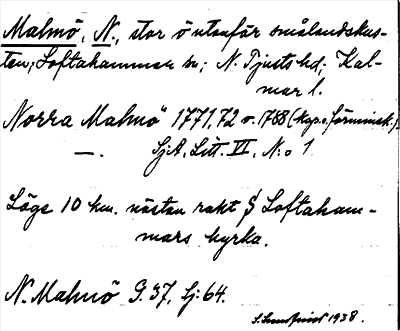 Malmö, N., stor ö utanför smålandskus-
ten; Loftahammar sn; N. Tjusts hd; Kal-
mar l.
Norra Malmö 1771, 72 o. 1788 (kop. o. förminsk.)
—. SjA, Litt. VI, N:o 1
Läge 10 km. nästan rakt S Loftaham-
mars kyrka.
N. Malmö G. 37, Sj: 64.
S. Lundqvist 1938.